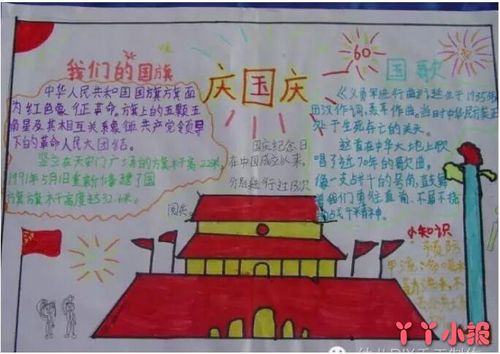 我们的国旗
中华人民共和国国旗旗面
为红色象征革命,旗上的五颗五
角星及其相互关系象征共产党领导
下的革命人民大团结。
竖立在天安门广场的旗杆高22米,
1991年5月1日重新修建了国
旗旗杆高度达32.6米。
庆国庆
国庆纪念日
在中国成立以来,
分别进行过13次
阅兵。
60
国歌
《义勇军进行曲》诞生于1935年
田汉作词,聂耳作曲。当时中华民族正
处于生死存亡的关头。
这首在中华大地上歌
唱了近70年的歌曲。
像一支战斗的号角,鼓舞
着我们勇往直前、不屈不挠
的战斗精神。
小知识
预防
甲流
丫丫小报